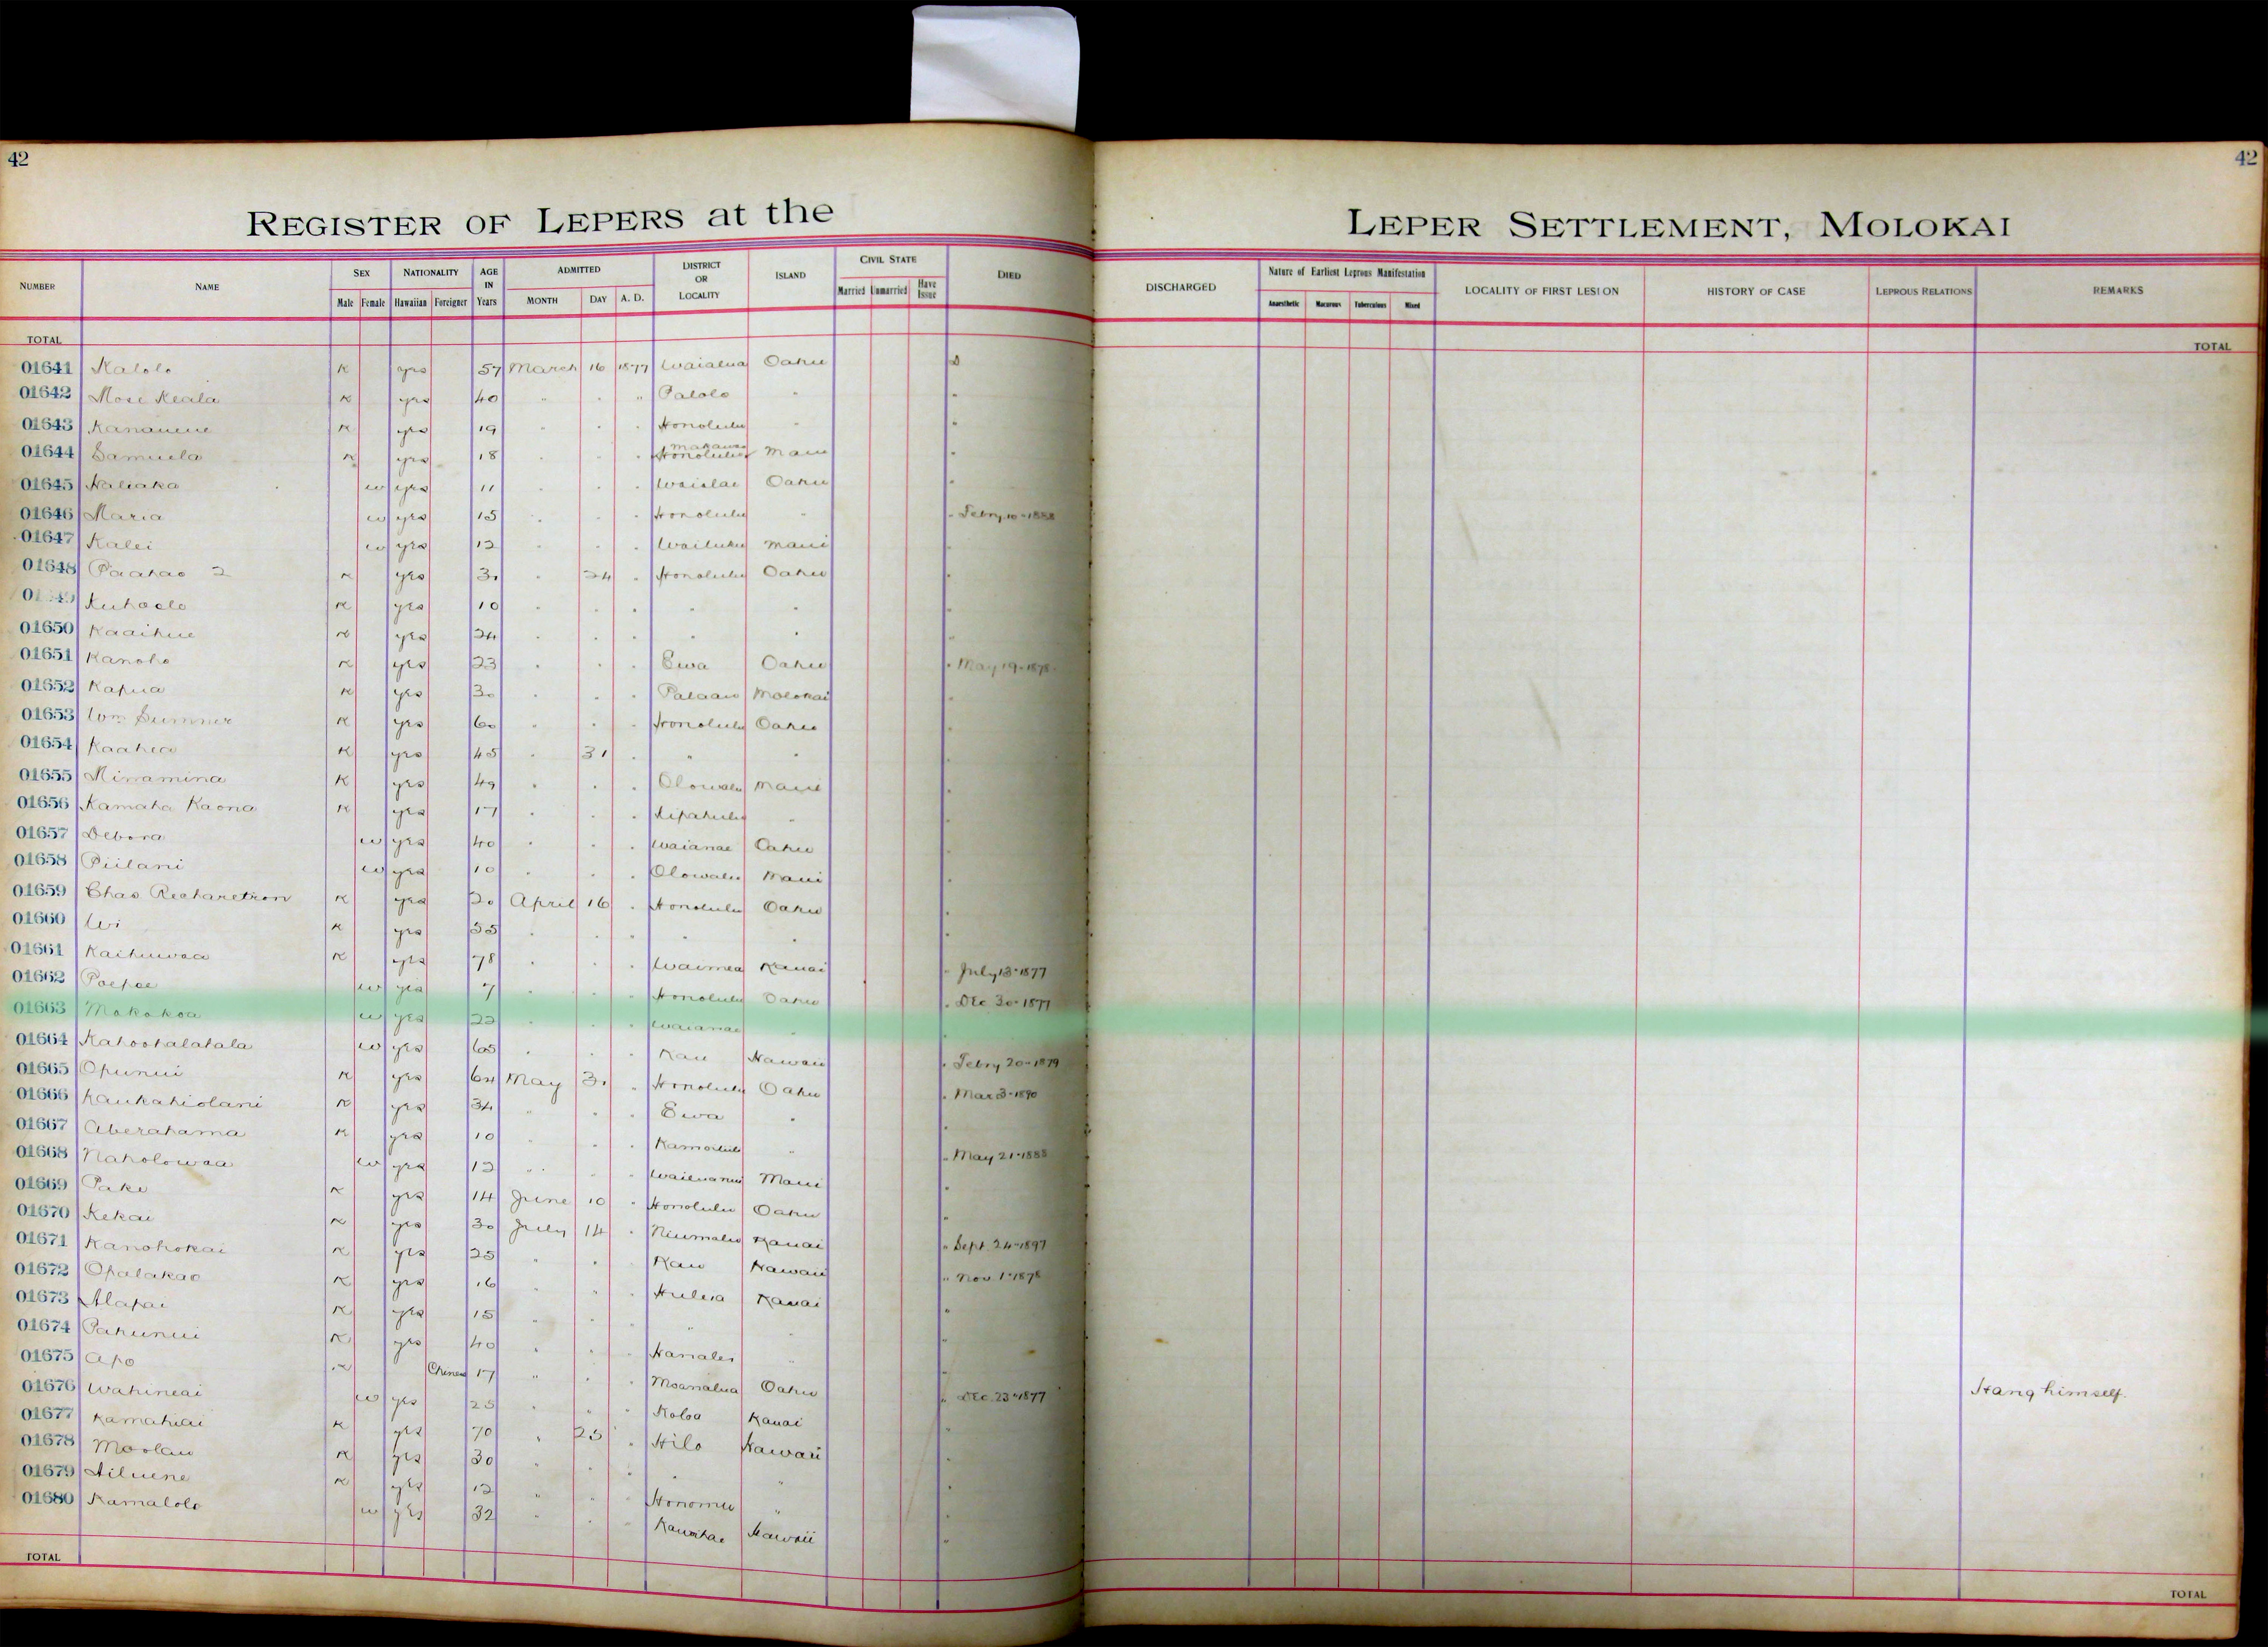 42
42
REGISTER OF LEPERS at the
LEPER SETTLEMENT, MOLOKAI
NUMBER NAME SEX Male Female NATIONALITY Hawaiian Foreigner AGE IN Years ADMITTED MONTH DAY A. D. DISTRICT OR LOCALITY ISLAND CIVIL STATE Married Unmarried Have Issue DIED
DISCHARGED Nature of Earliest Leprous Manifestation Anaesthetic Macurous Tuberculous Mixed LOCALITY OF FIRST LESION HISTORY OF CASE LEPROUS RELATIONS REMARKS
TOTAL
TOTAL
01641 Kalolo K yes 57 March 16 1877 Waialua Oahu D
01642 Mose Keala K yes 40 " " " Palolo "
01643 Kananune K yes 19 " " " Honolulu "
01644 Samuela K yes 18 " " " Makawao Honolulu Maui "
01645 Naliaka w yes 11 " " " Waialae Oahu "
01646 Maria w yes 15 " " " Honolulu " " Febry 10-1888
01647 Kalei w yes 12 " " " Wailuku Maui "
01648 Paahao 2 K yes 30 " 24 " Honolulu Oahu "
Kuhaelo K yes 10 " " " " " "
01650 Kaaihue K yes 24 " " " " " "
01651 Kanoho K yes 23 " " " Ewa Oahu " May 19-1878
01652 Kapua K yes 30 " " " Palaau Molokai "
01653 Wm Sumner K yes 60 " " " Honolulu Oahu "
01654 Kaahea K yes 45 " 31 " " " "
01655 Minamina K yes 49 " " " Olowalu Maui "
01656 Kamaha Kaona K yes 17 " " " Kipahulu " "
01657 Debora w yes 40 " " " Waianae Oahu "
01658 Piilani w yes 10 " " " Olowalu Maui "
01659 Chas Richaretson K yes 20 April 16 " Honolulu Oahu "
01660 Wi K yes 55 " " " " " "
01661 Kaihuwaa K yes 78 " " " Waimea Kauai " July 13-1877
01662 Poepoe w yes 7 " " " Honolulu Oahu " Dec 30-1877
01663 Makakoa w yes 22 " " " Waianae " "
01664 Kahoohalahala w yes 65 " " " Kau Hawaii " Febry 20-1879
01665 Opunui K yes 64 May 31 " Honolulu Oahu " Mar 3-1890
01666 Kaukahiolani K yes 34 " " " Ewa " "
01667 Aberahama K yes 10 " " " Kamoiliili " " May 21-1888
01668 Naholowaa w yes 12 " " " Wailuanui Maui "
01669 Pake K yes 14 June 10 " Honolulu Oahu "
01670 Kekai K yes 30 July 14 " Niumalu Kauai " Sept. 24-1897
01671 Kanohokai K yes 25 " " " Kau Hawaii " Nov 1-1878
01672 Opalakao K yes 16 " " " Huleia Kauai "
01673 Alapai K yes 15 " " " " " "
01674 Pahunui K yes 40 " " " Hanalei " "
01675 Apo K Chinese 17 " " " Moanalua Oahu " Dec. 23-1877 Hang himself.
01676 Wahineai w yes 25 " " " Koloa Kauai "
01677 Kamahiai K yes 70 " 25 " Hilo Hawaii "
01678 Moolau K yes 30 " " " " " "
01679 Ailuene K yes 12 " " " Honomu " "
01680 Kamalolo w yes 32 " " " Kawaihae Hawaii "
TOTAL
TOTAL